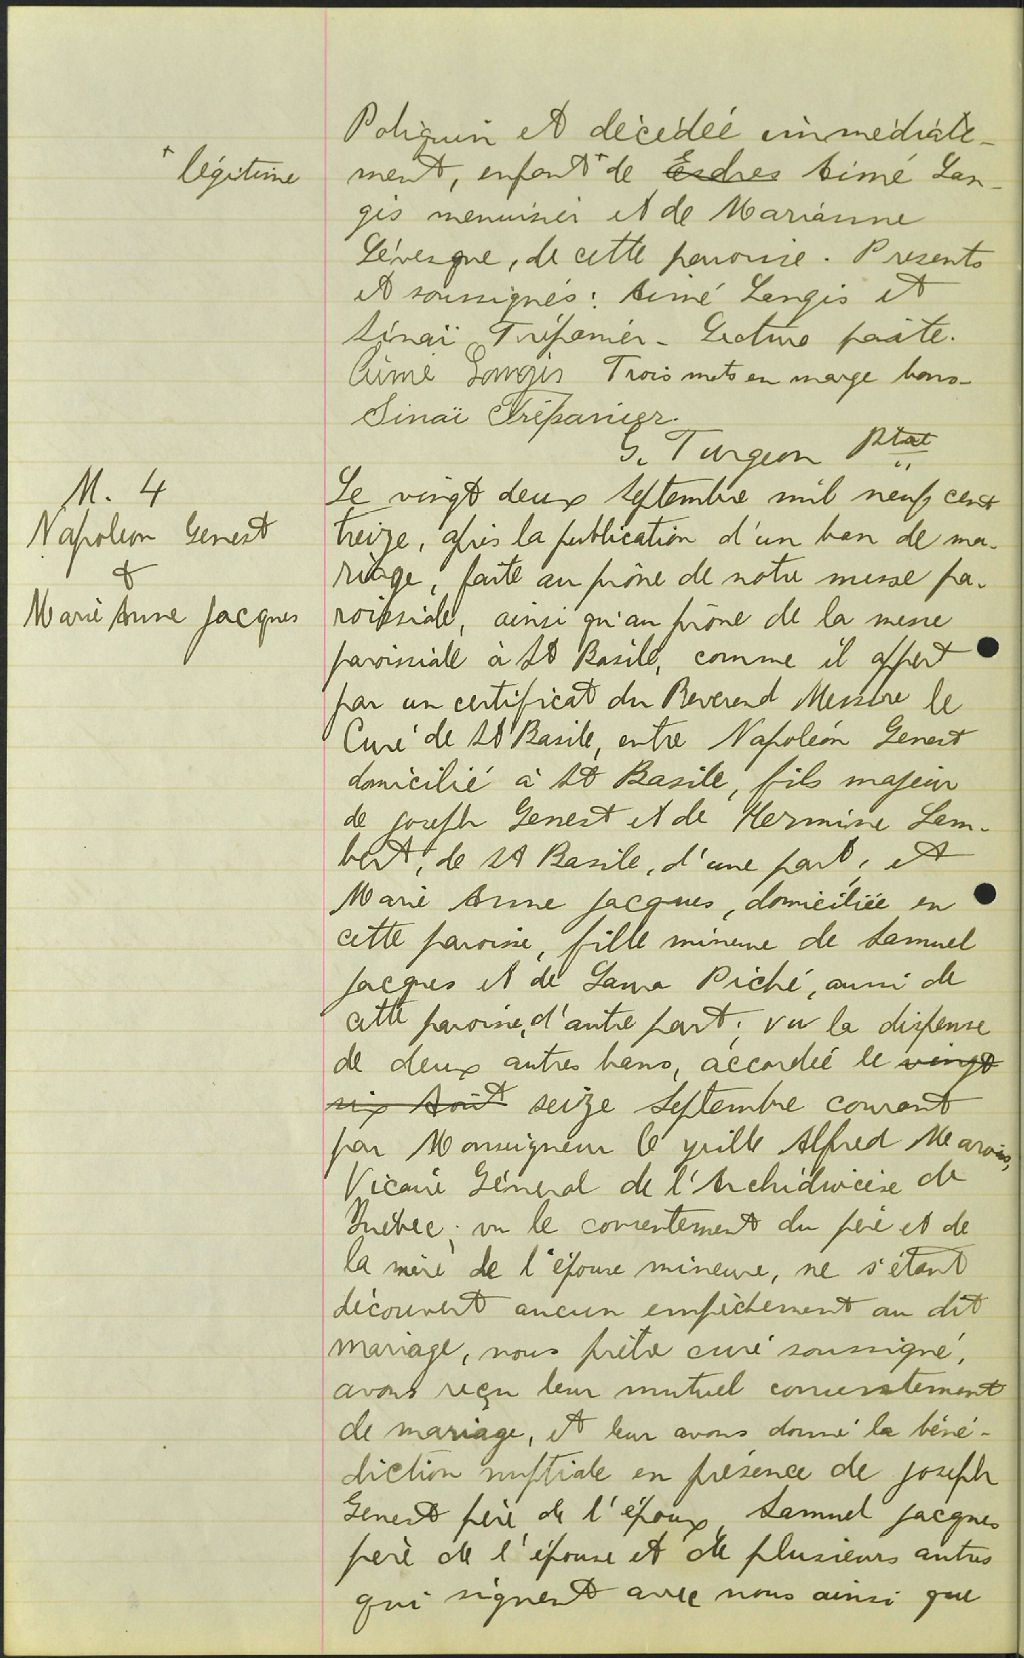 Poliquin et décédée immédiate-
+ légitime
ment, enfant + de Esdras Aimé Lan-
gis menuisier et de Marianne
Lévesque, de cette paroisse. Présents
et soussignés: Aimé Langis et
Sinaï Trépanier - Lecture faite.
Aimé Langis Trois mots en marge bons-
Sinaï Trépanier.
G. Turgeon Ptre
M. 4
Napoléon Genest
&
Marie Anne Jacques
Le vingt deux Septembre mil neuf cent
treize, après la publication d'un ban de ma-
riage, faite au prône de notre messe pa-
roissiale, ainsi qu'au prône de la messe
paroissiale à St Basile, comme il appert
par un certificat du Reverend Messire le
Curé de St Basile, entre Napoléon Genest
domicilié à St Basile, fils majeur
de Joseph Genest et de Hermine Lam-
bert, de St Basile, d'une part, et
Marie Anne Jacques, domiciliée en
cette paroisse, fille mineure de Samuel
Jacques et de Laura Piché, aussi de
cette paroisse, d'autre part; vu la dispense
de deux autres bans, accordée le vingt
six Août seize Septembre courant
par Monseigneur Cyrille Alfred Marois,
Vicaire Général de l'Archidiocèse de
Québec; vu le consentement du père et de
la mère de l'épouse mineure, ne s'étant
découvert aucun empêchement au dit
mariage, nous prêtre curé soussigné,
avons reçu leur mutuel consentement
de mariage, et leur avons donné la béné-
diction nuptiale en présence de Joseph
Genest père de l'époux, Samuel Jacques
père de l'épouse et de plusieurs autres
qui signent avec nous ainsi que